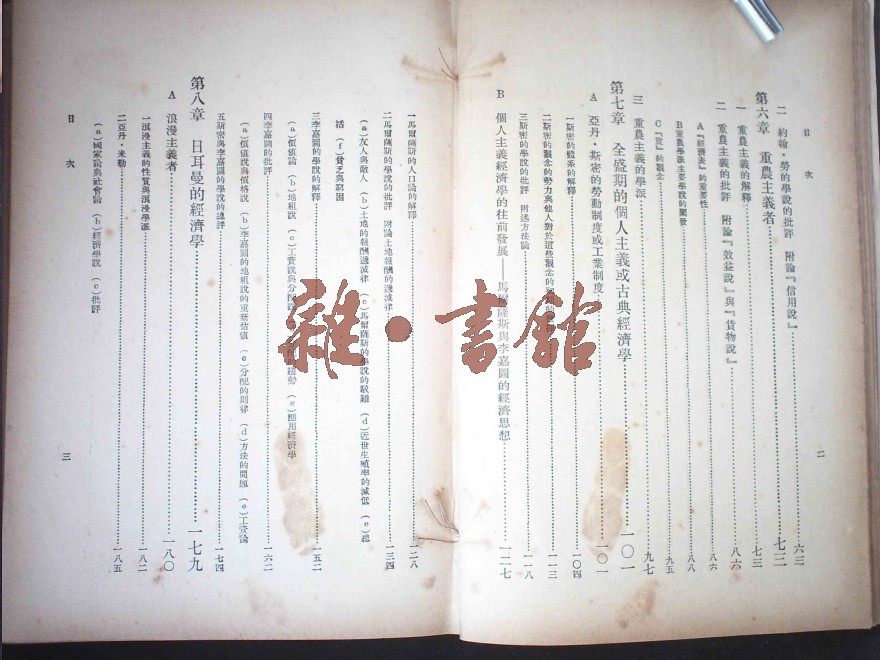 目次
二 約翰·勞的學說的批評 附論『信用說』 六三
第六章 重農主義者 七三
一 重農主義的解釋 七三
二 重農主義的批評 附論『效益說』與『貨物說』 八六
A『經濟表』的重要性 八六
B重農學派主要學說的闡發 八八
C『質』的觀念 九五
三 重農主義的學派 九七
第七章 全盛期的個人主義或古典經濟學 一〇一
A 亞丹·斯密的勞動制度或工業制度 一〇一
一斯密的體系的解釋 一〇四
二斯密的觀念的勢力與他人對於這些觀念的 一一三
三斯密的學說的批評 附述方法論 一一八
B 個人主義經濟學的往前發展——馬爾薩斯與李嘉圖的經濟思想 一二七
二
一馬爾薩斯的人口論的解釋 一二八
二馬爾薩斯的學說的批評 附論土地報酬的遞減律 一三四
(a)友人與敵人 (b)土地的報酬遞減律 (c)馬爾薩斯的學說的駁難 (d)近世生殖率的減低 (e)總
括 (f)貧乏與窮困
三李嘉圖的學說的解釋 一五二
(a)價值論 (b)地租說 (c)工資說與分配 (e)應用經濟學
四李嘉圖的批評 一六二
(a)價值說與價格說 (b)李嘉圖的地租說的重新估值 (c)分配的則律 (d)方法的問題 (e)工資論
五斯密與李嘉圖的學說的總評 一七四
第八章 日耳曼的經濟學 一七九
A 浪漫主義者 一八〇
一浪漫主義的性質與浪漫學派 一八二
二亞丹·米勒 一八五
(a)國家論與社會論 (b)經濟學說 (c)批評
目次
三
雜·書館